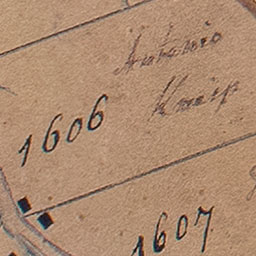 Antonio
Kneip
1606
1607